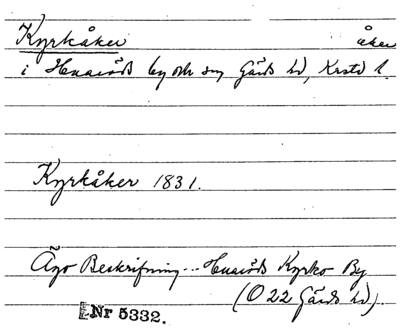 Kyrkåker åker
i Huaröds by och sn, Gärds hd, Krstd l.
Kyrkåker 1831.
Ägo Beskrifning... Huaröds Kyrko By
(O 22 Gärds hd).
Nr 5332.